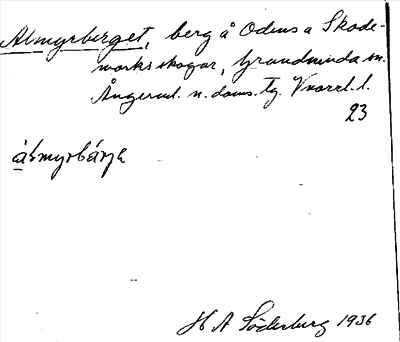 Abmyrberget, berg å Odens a Skode-
marksskogar, Grundsunda sn.
Ångerml. n. doms. tg. Vnorrl. l.
23
ábmyrbárje
H A Söderberg 1936